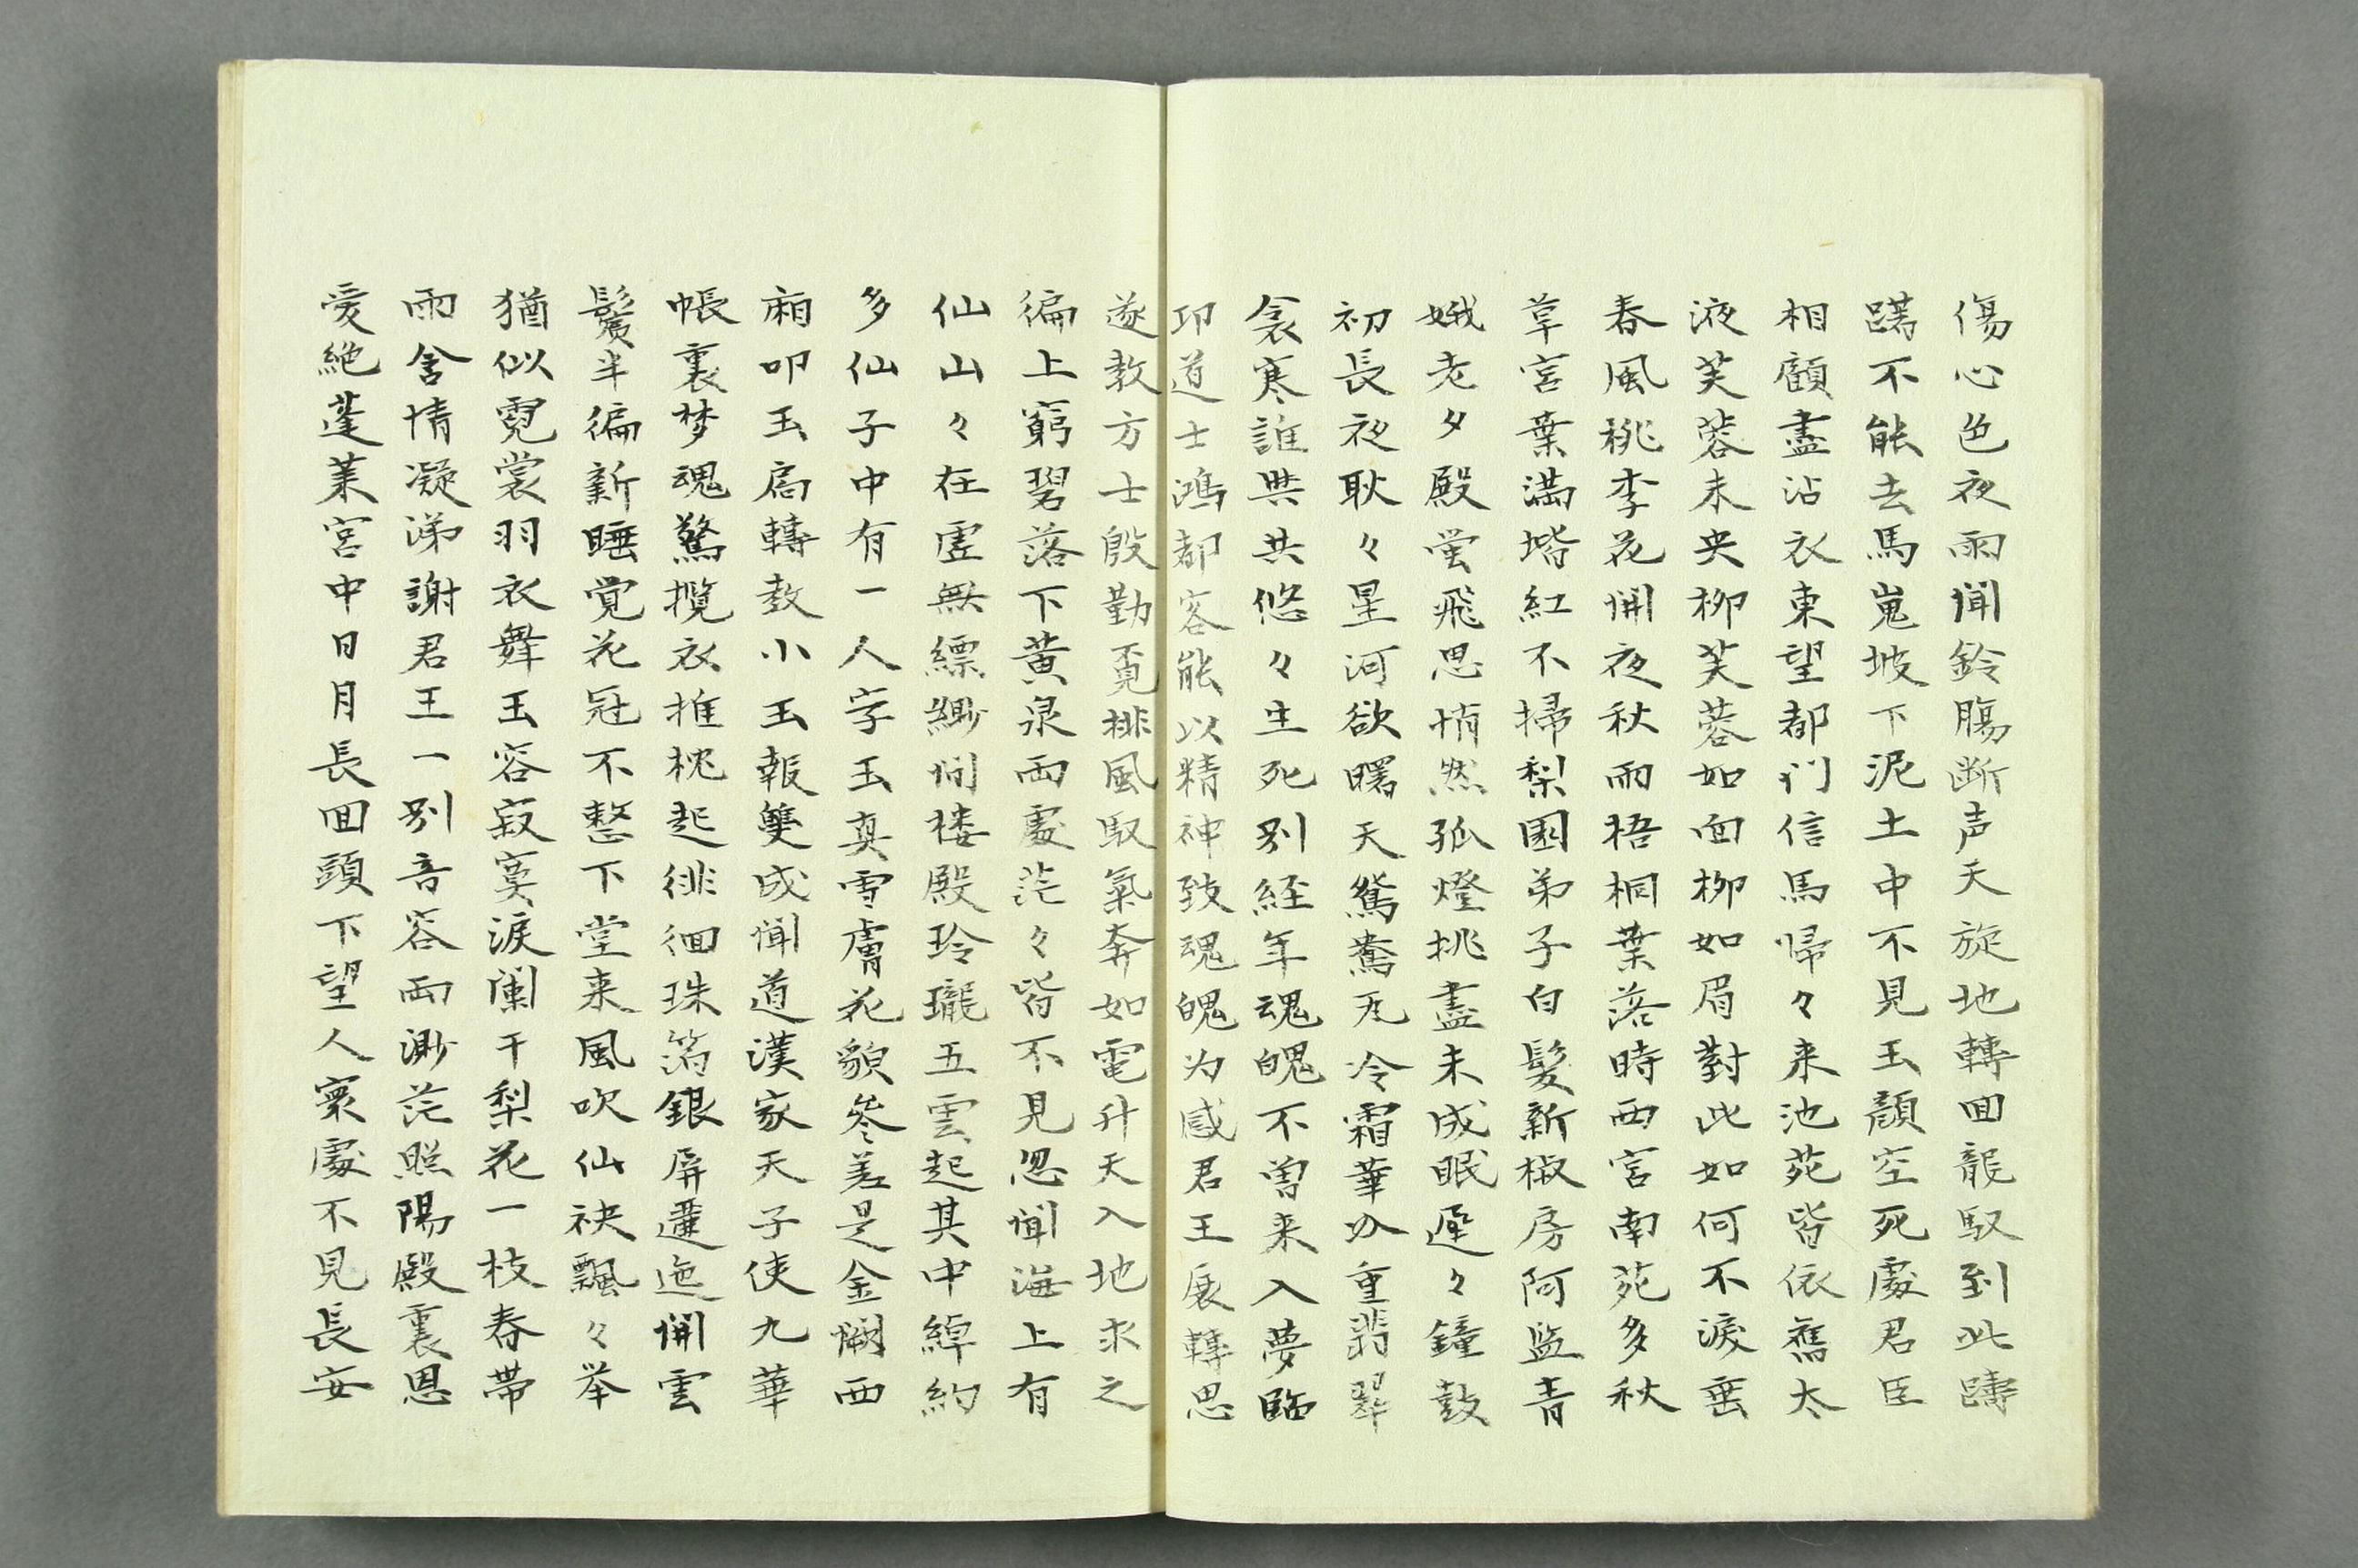 傷心色夜雨聞鈴膓断声天旋地轉回龍馭到此躊
躇不能去馬嵬坡下泥土中不見玉顏空死處君臣
相顧盡沾衣東望都門信馬帰々来池苑皆依舊太
液芙蓉未央柳芙蓉如面柳如眉對此如何不淚垂
春風桃李花開夜秋雨梧桐葉落時西宮南苑多秋
草宮葉満堦紅不掃梨園弟子白髪新椒房阿監青
娥老夕殿蛍飛思悄然孤燈挑盡未成眠遅々鐘鼓
初長夜耿々星河欲曙天鴛鴦瓦冷霜華重翡翠
衾寒誰與共悠々生死别経年魂魄不曽来入夢臨
邛道士鴻都客能以精神致魂魄为感君王展轉思
遂教方士殷勤覔排風馭氣奔如電升天入地求之
徧上窮碧落下黄泉両處茫々皆不見忽聞海上有
仙山々在虚無縹緲間楼殿玲瓏五雲起其中綽約
多仙子中有一人字玉真雪膚花貌叅差是金闕西
廂叩玉扃轉教小玉報雙成聞道漢家天子使九華
帳裏梦魂驚攬衣推枕起徘徊珠箔銀屏邐迤開雲
鬢半偏新睡覚花冠不整下堂来風吹仙袂飄々举
猶似霓裳羽衣舞玉容寂寞淚闌干梨花一枝春帯
雨含情凝涕謝君王一别音容両渺茫昭陽殿裏恩
愛絶蓬莱宮中日月長回頭下望人寰處不見長安